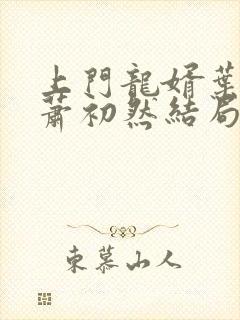 上門龍婿葉
蕭初然結局
東慕山人